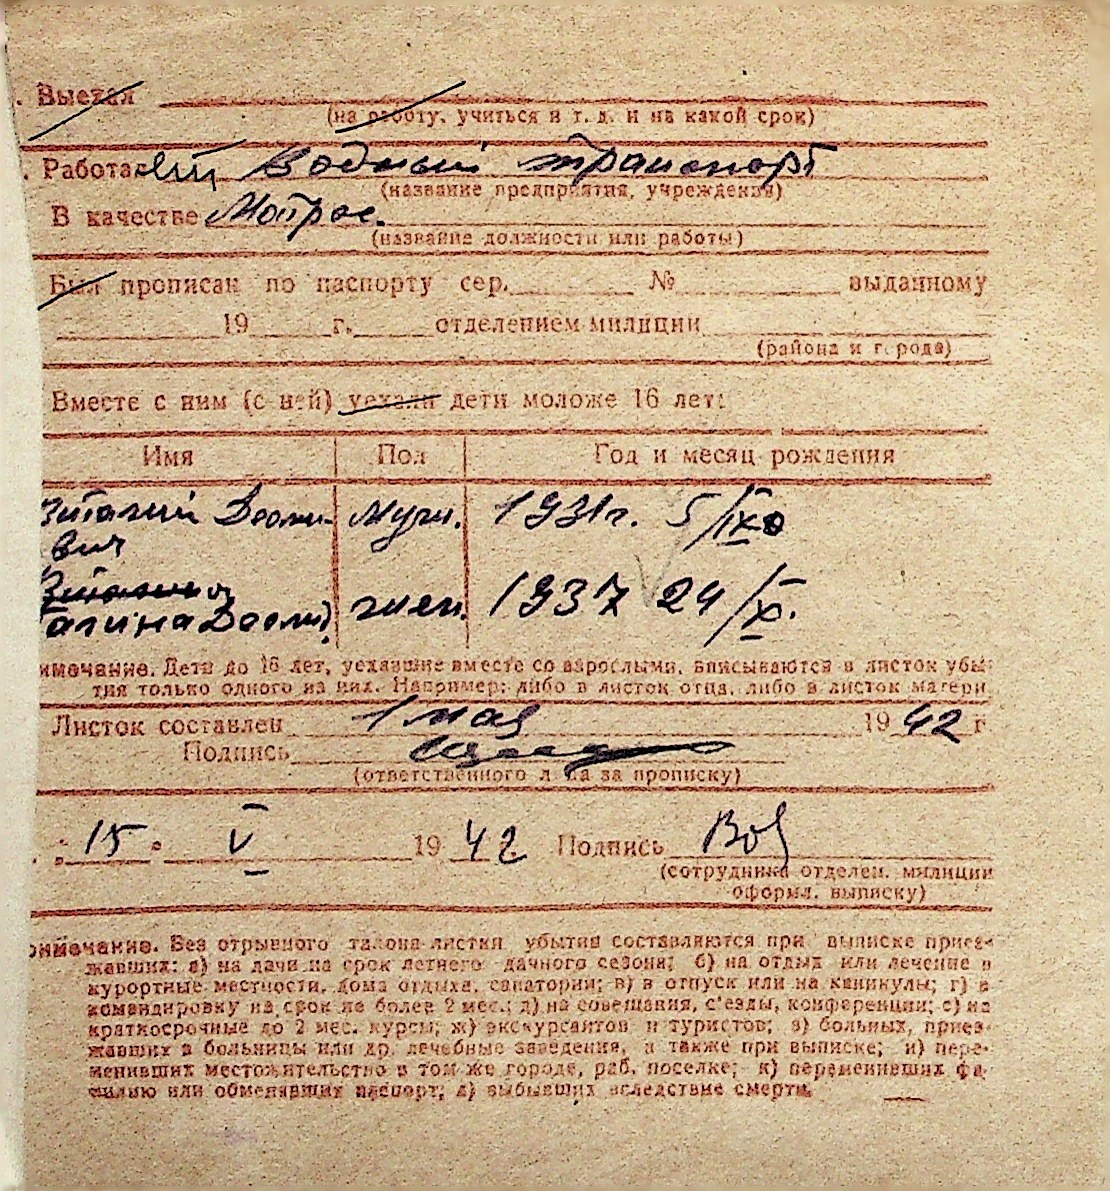 . Выехал
(на работу, учиться и т. д. и на какой срок)
. Работает Водный транспорт
(название предприятия, учреждения)
В качестве Матрос.
(название должности или работы)
Был прописан по паспорту сер. № выданному
19 г. отделением милиции
(района и города)
Вместе с ним (с ней) уехали дети моложе 16 лет:
Имя Пол Год и месяц рождения
Виталий муж. 1931г. 5/IX
вич
Галина жен. 1937 24/X.
имечание. Дети до 16 лет, уехавшие вместе со взрослыми, вписываются в листок убы-
тия только одного из них. Например: либо в листок отца, либо в листок матери
Листок составлен 1 мая 1942 г
Подпись
(ответственного лица за прописку)
15 V 1942 Подпись
(сотрудника отделен. милиции
оформл. выписку)
римечание. Без отрывного талона листки убытия составляются при выписке приез-
жавших: а) на дачи на срок летнего дачного сезона; б) на отдых или лечение в
курортные местности, дома отдыха, санатории; в) в отпуск или на каникулы; г) в
командировку на срок не более 2 мес.; д) на совещания, с'езды, конференции; е) на
краткосрочные до 2 мес. курсы; ж) экскурсантов и туристов; з) больных, приез-
жавших в больницы или др. лечебные заведения, а также при выписке; и) пере-
менивших местожительство в том же городе, раб. поселке; к) переменивших фа-
милию или обменявших паспорт; л) выбывших вследствие смерти.